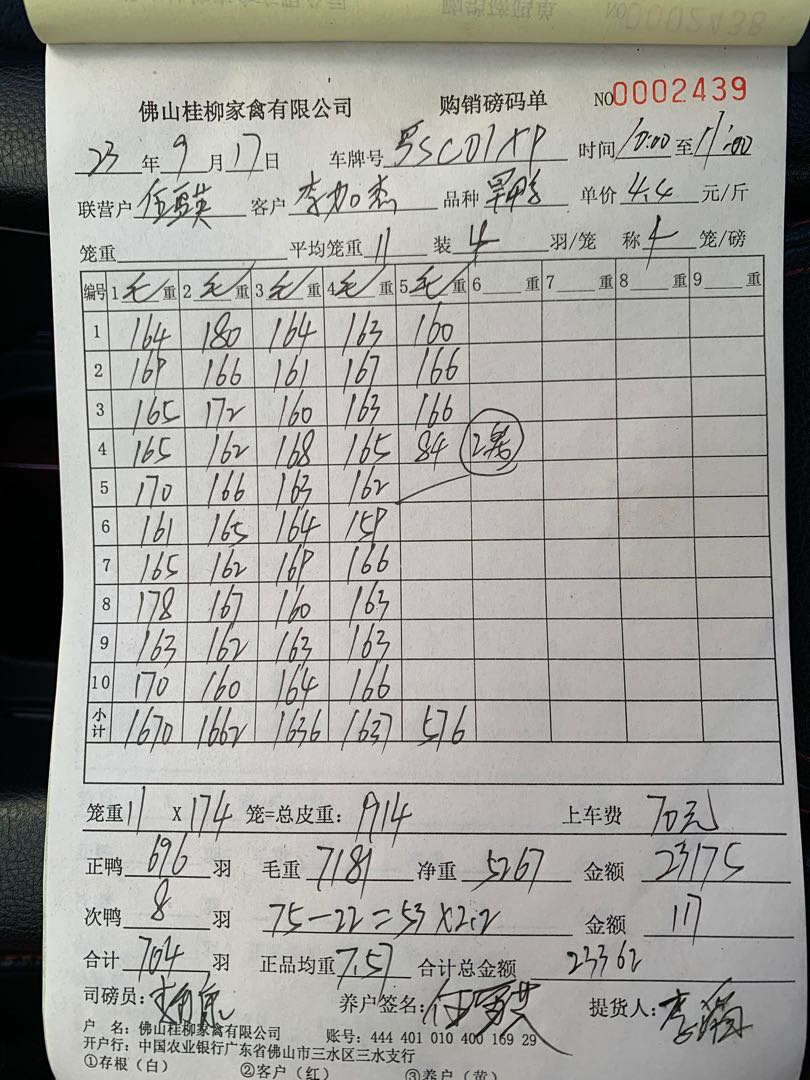 佛山桂柳家禽有限公司 购销磅码单 NO0002439
23 年 9 月 17 日 车牌号 时间 10:00 至 11:00
联营户 客户 李加杰 品种 单价 4.4 元/斤
笼重 平均笼重 11 装 4 羽/笼 称 4 笼/磅
编号 1 毛 重 2 毛 重 3 毛 重 4 毛 重 5 毛 重 6 重 7 重 8 重 9 重
1 164 180 164 163 160
2 169 166 161 167 166
3 165 172 160 163 166
4 165 162 168 165 84 2笼
5 170 166 163 162
6 161 165 164 159
7 165 162 169 166
8 178 167 160 163
9 163 162 163 163
10 170 160 164 166
小计 1670 1662 1636 1637 576
笼重 11 X 174 笼=总皮重: 1914 上车费 70元
正鸭 696 羽 毛重 7181 净重 5267 金额 23175
次鸭 8 羽 75-22=53×2.2 金额 117
合计 704 羽 正品均重 7.57 合计总金额 23362
司磅员: 养户签名: 提货人:
户 名: 佛山桂柳家禽有限公司 账号: 444 401 010 400 169 29
开户行: 中国农业银行广东省佛山市三水区三水支行
①存根(白) ②客户(红) ③养户(黄)